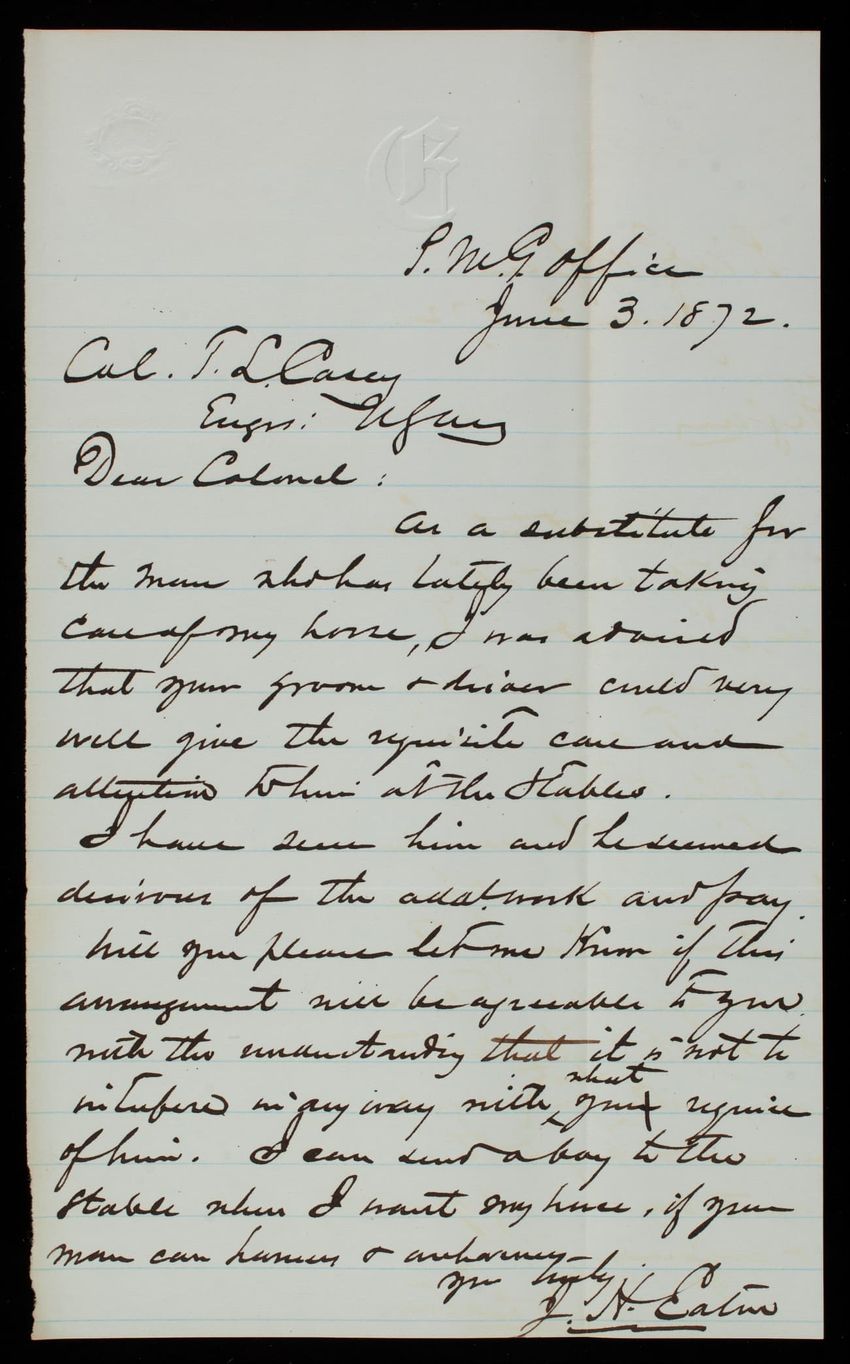 P.M.G. Office
June 3. 1872.
Col. T. L. Casey
Engrs: US Army
Dear Colonel :
As a substitute for
the man who has lately been taking
care of my horse, I was advised
that your groom & driver could very
well give the requisite care and
attention to him at the Stables.
I have seen him and he seemed
desirous of the addl. work and pay.
Will you please let me know if this
arrangement will be agreeable to you
with the understanding that it is not to
interfere in any way with what you require
of him. I can send a boy to the
Stable when I want my horse, if your
man can harness & unharness
yrs truly
J. H. Eaton